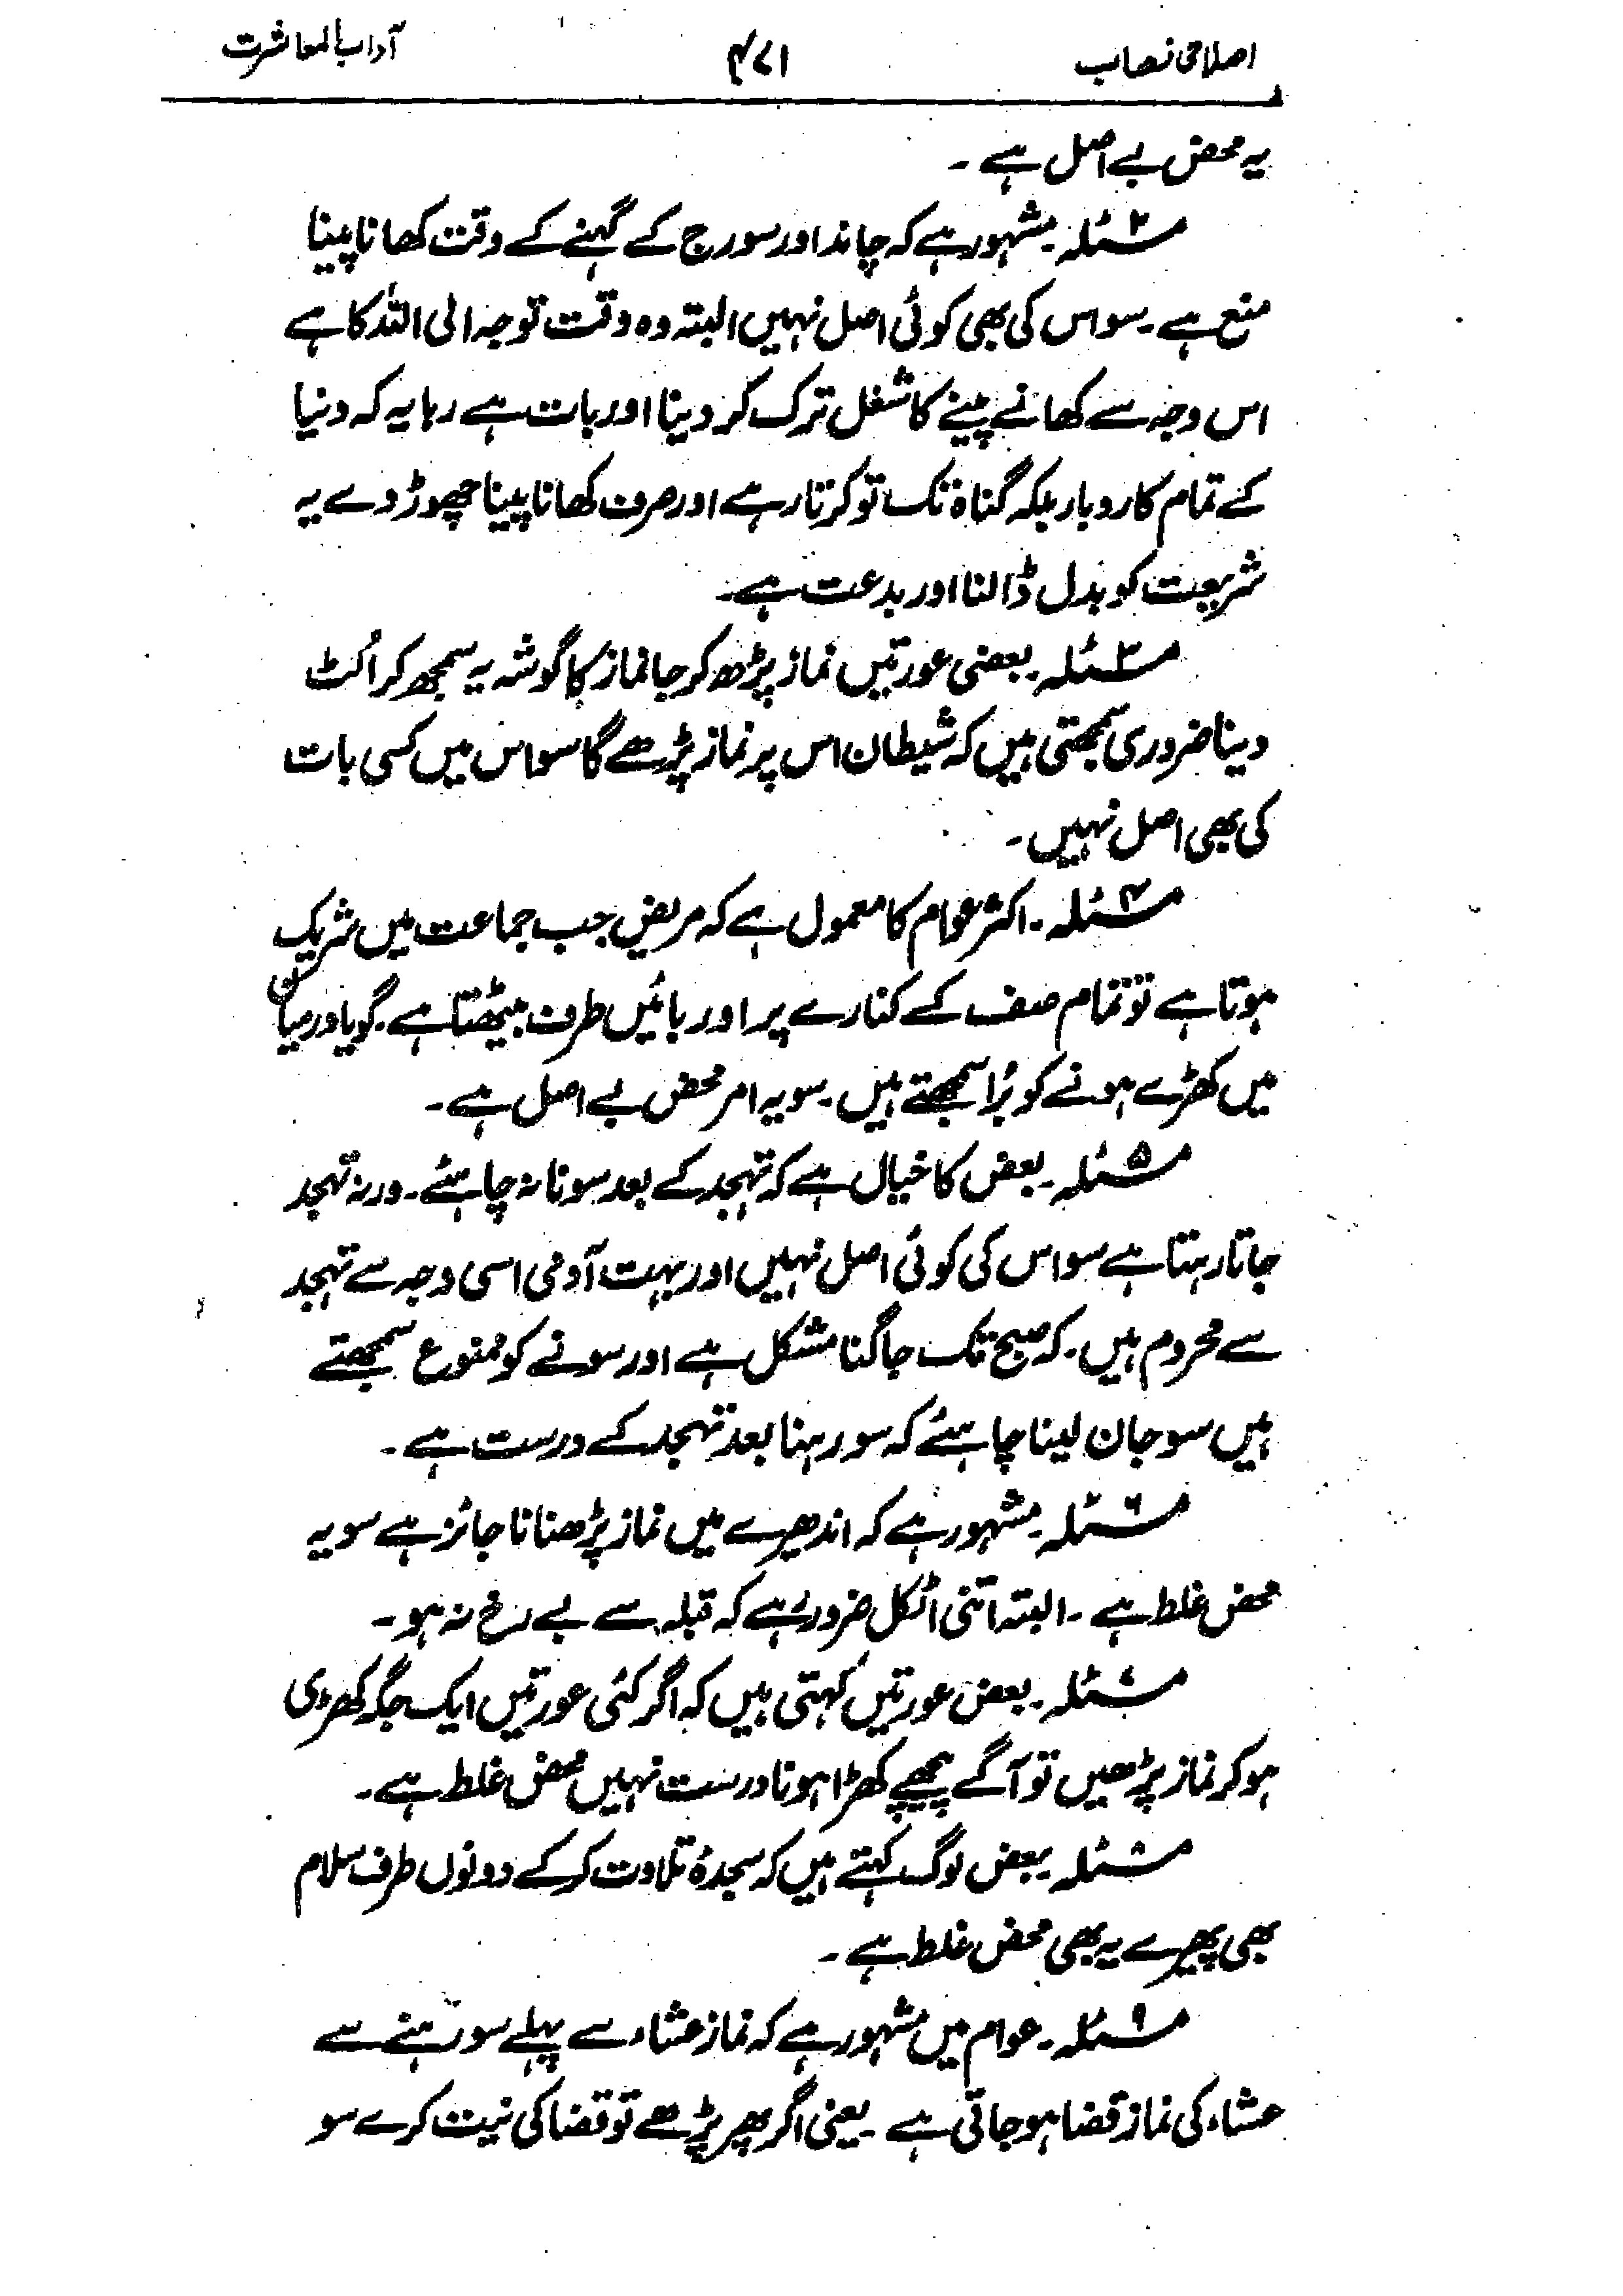 اصلاحی نصاب ۴۷۱ آداب المعاشرت
یہ محض بے اصل ہے ۔
مسئلہ ۲۔ مشہور ہے کہ چاند اور سورج کے گہنے کے وقت کھانا پینا
منع ہے ۔ سو اس کی بھی کوئی اصل نہیں البتہ وہ وقت توجہ الی اللہ کا ہے
اس وجہ سے کھانے پینے کا شغل ترک کر دینا اور بات ہے رہا یہ کہ دنیا
کے تمام کاروبار بلکہ گناہ تک تو کرتا رہے اور صرف کھانا پینا چھوڑ دے یہ
شریعت کو بدل ڈالنا اور بدعت ہے۔
مسئلہ ۳۔ بعضی عورتیں نماز پڑھ کر جا نماز کا گوشہ یہ سمجھ کر اُلٹ
دینا ضروری سمجھتی ہیں کہ شیطان اس پر نماز پڑھے گا سو اس میں کسی بات
کی بھی اصل نہیں ۔
مسئلہ ۴۔ اکثر عوام کا معمول ہے کہ مریض جب جماعت میں شریک
ہوتا ہے تو تمام صف کے کنارے پر اور بائیں طرف بیٹھتا ہے ۔ گویا درمیان
میں کھڑے ہونے کو بُرا سمجھتے ہیں ۔ سو یہ امر محض بے اصل ہے ۔
مسئلہ ۵۔ بعض کا خیال ہے کہ تہجد کے بعد سونا نہ چاہئے ۔ ورنہ تہجد
جاتا رہتا ہے سو اس کی کوئی اصل نہیں اور بہت آدمی اسی وجہ سے تہجد
سے محروم ہیں ۔ کہ صبح تک جاگنا مشکل ہے اور سونے کو ممنوع سمجھتے
ہیں سو جان لینا چاہئے کہ سو رہنا بعد تہجد کے درست ہے ۔
مسئلہ ۶۔ مشہور ہے کہ اندھیرے میں نماز پڑھنا ناجائز ہے سو یہ
محض غلط ہے ۔ البتہ اتنی اٹکل ضرور ہے کہ قبلہ سے بے رخ نہ ہو ۔
مسئلہ ۷۔ بعض عورتیں کہتی ہیں کہ اگر کئی عورتیں ایک جگہ کھڑی
ہو کر نماز پڑھیں تو آگے پیچھے کھڑا ہونا درست نہیں محض غلط ہے ۔
مسئلہ ۸۔ بعض لوگ کہتے ہیں کہ سجدۂ تلاوت کر کے دونوں طرف سلام
بھی پھیرے یہ بھی محض غلط ہے ۔
مسئلہ ۹۔ عوام میں مشہور ہے کہ نماز عشاء سے پہلے سو رہنے سے
عشاء کی نماز قضا ہو جاتی ہے ۔ یعنی اگر پھر پڑھے تو قضا کی نیت کرے سو